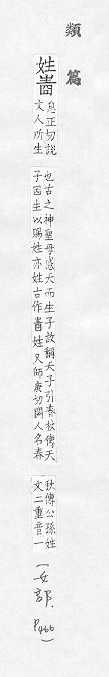 類篇
姓𤯣
息正切説
文人所生
也古之神聖母感天而生子故稱天子引春秋傳天
子因生以賜姓亦姓古作𤯣姓又師庚切闕人名春
秋傳公孫姓
文二重音一
(女部. P466)